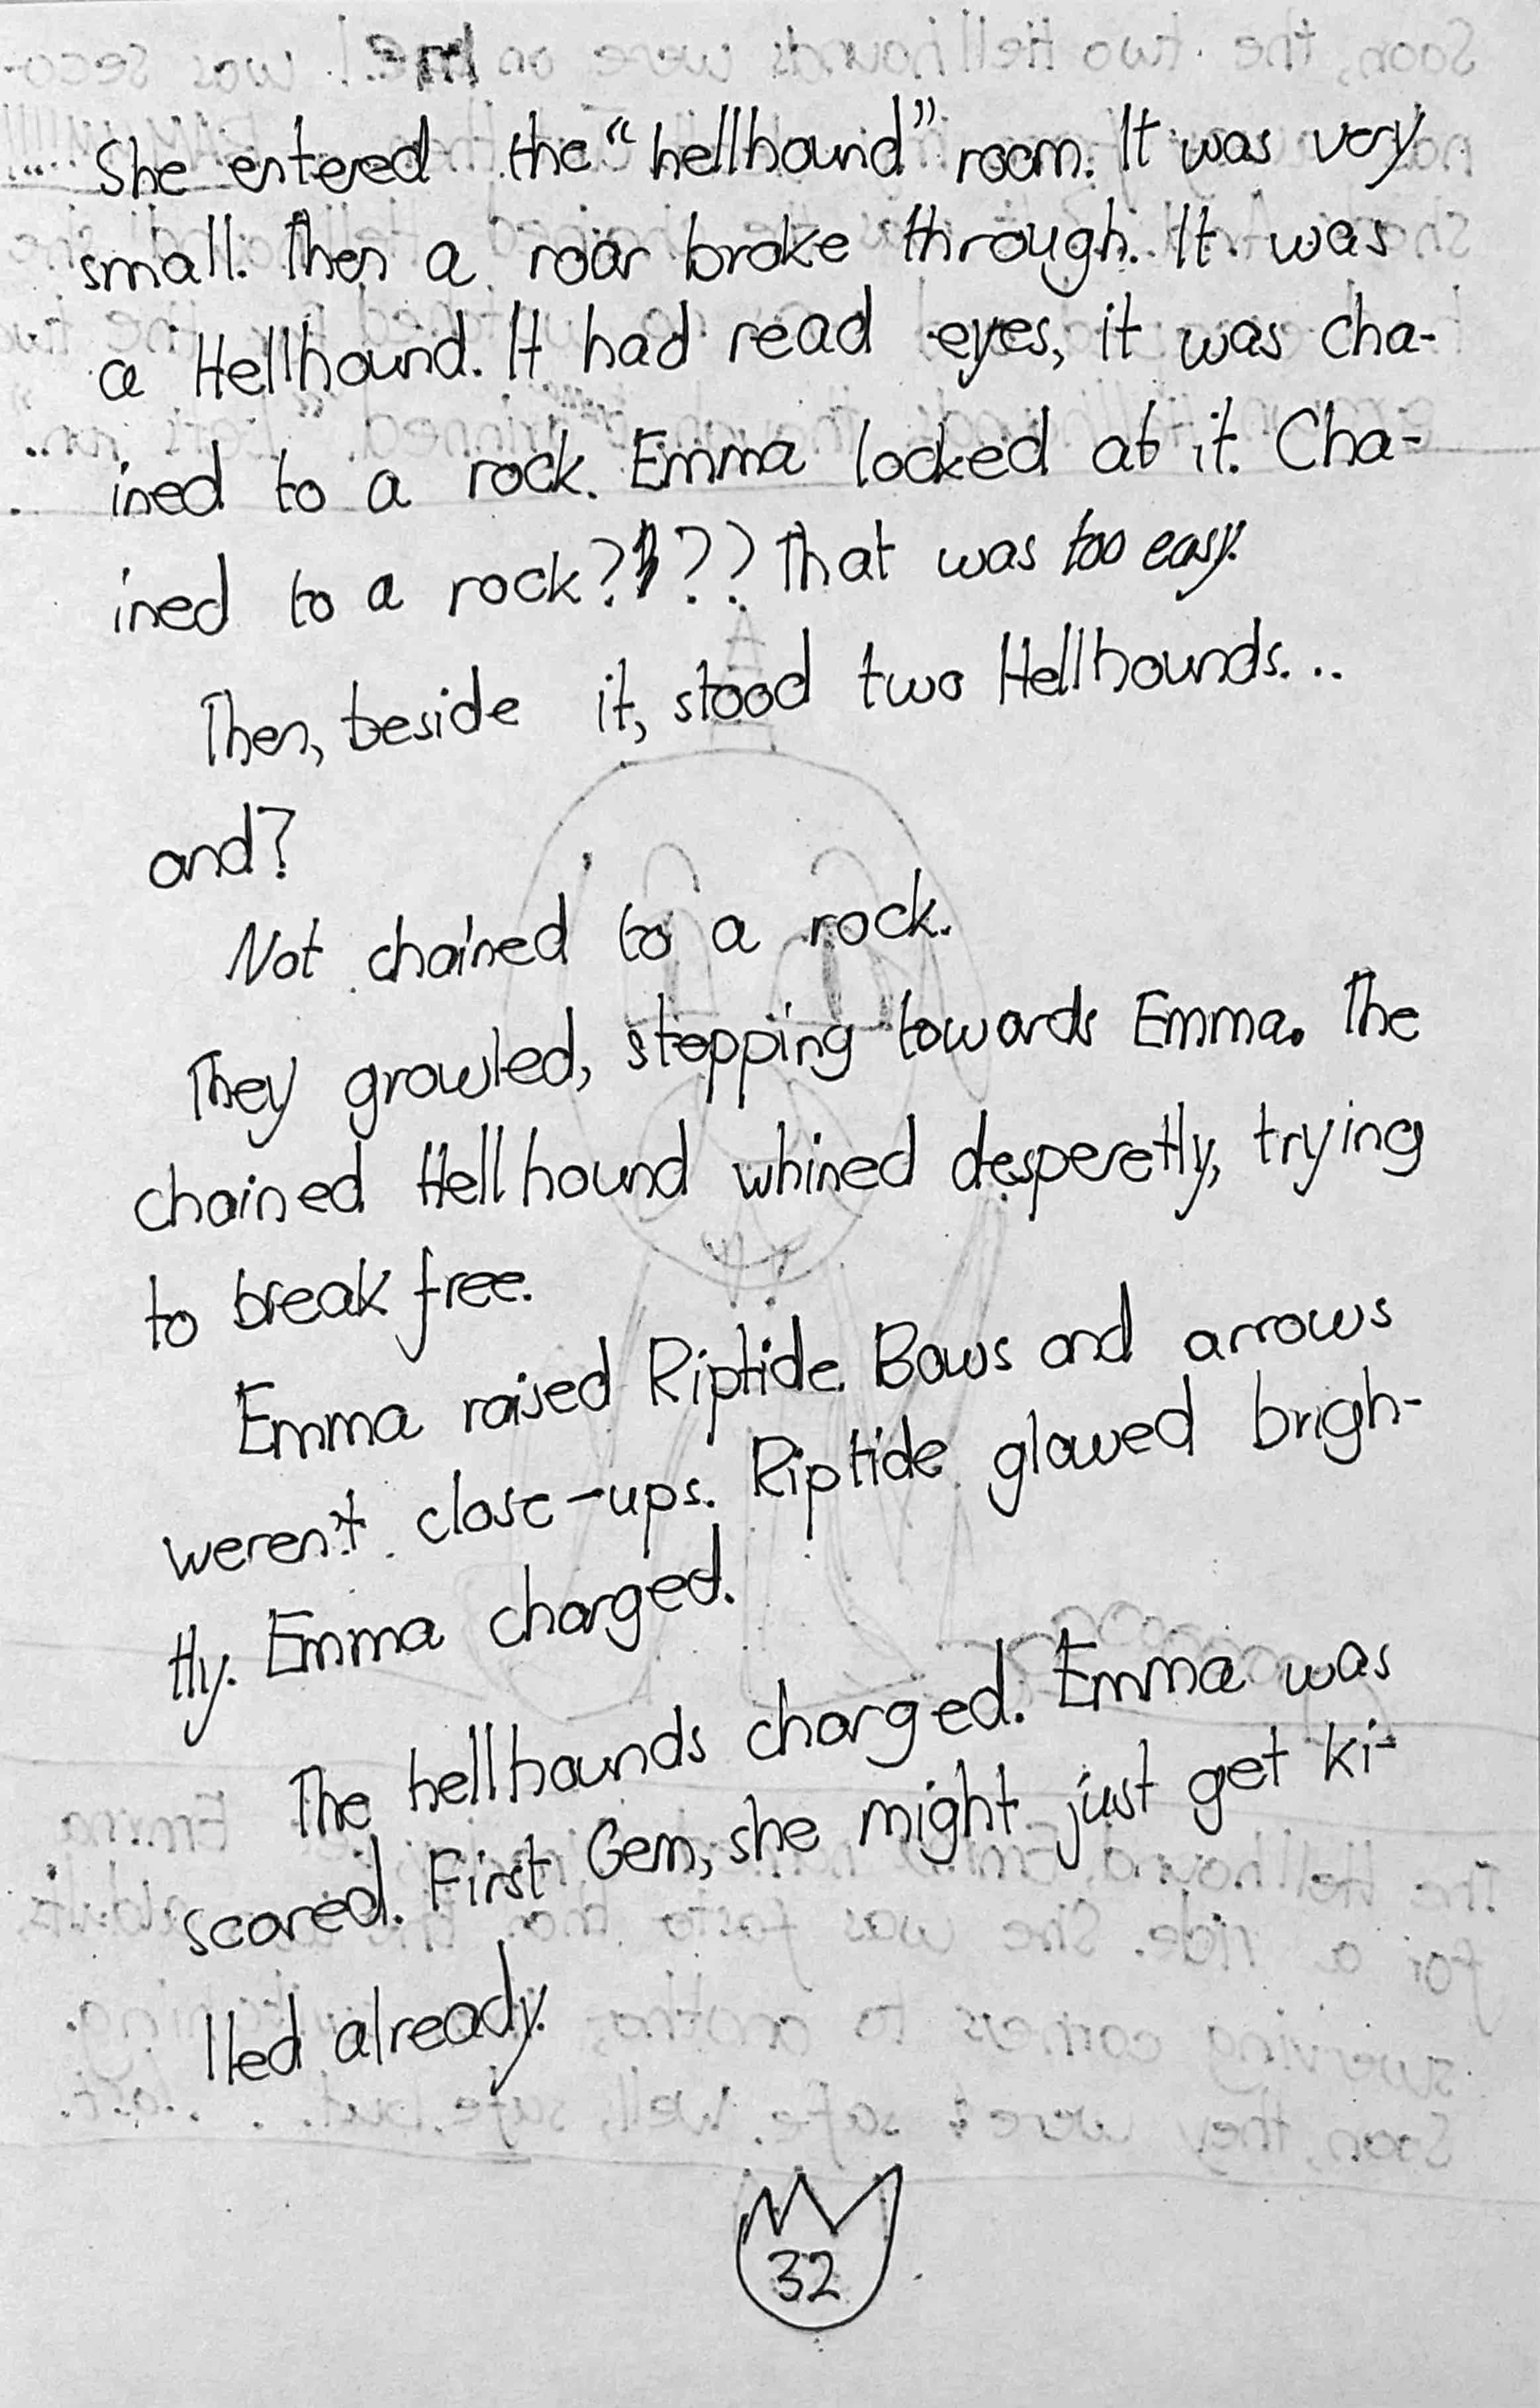 She entered the "hellhound" room. It was very
small. Then a roar broke through. It was
a Hellhound. It had read eyes, it was cha-
ined to a rock. Emma looked at it. Cha-
ined to a rock???? That was too easy.
Then, beside it, stood two Hellhounds...
and?
Not chained to a rock.
They growled, stepping towards Emma. The
chained Hellhound whined desperetly, trying
to break free.
Emma raised Riptide. Bows and arrows
weren't close-ups. Riptide glowed brigh-
tly. Emma charged.
The hellhounds charged. Emma was
scared. First Gem, she might just get ki-
lled already.
32